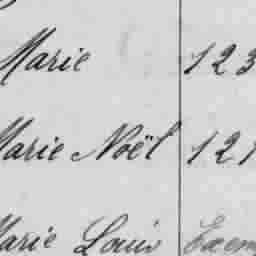 Marie 123
Marie Noël 121
Marie Louis Exem